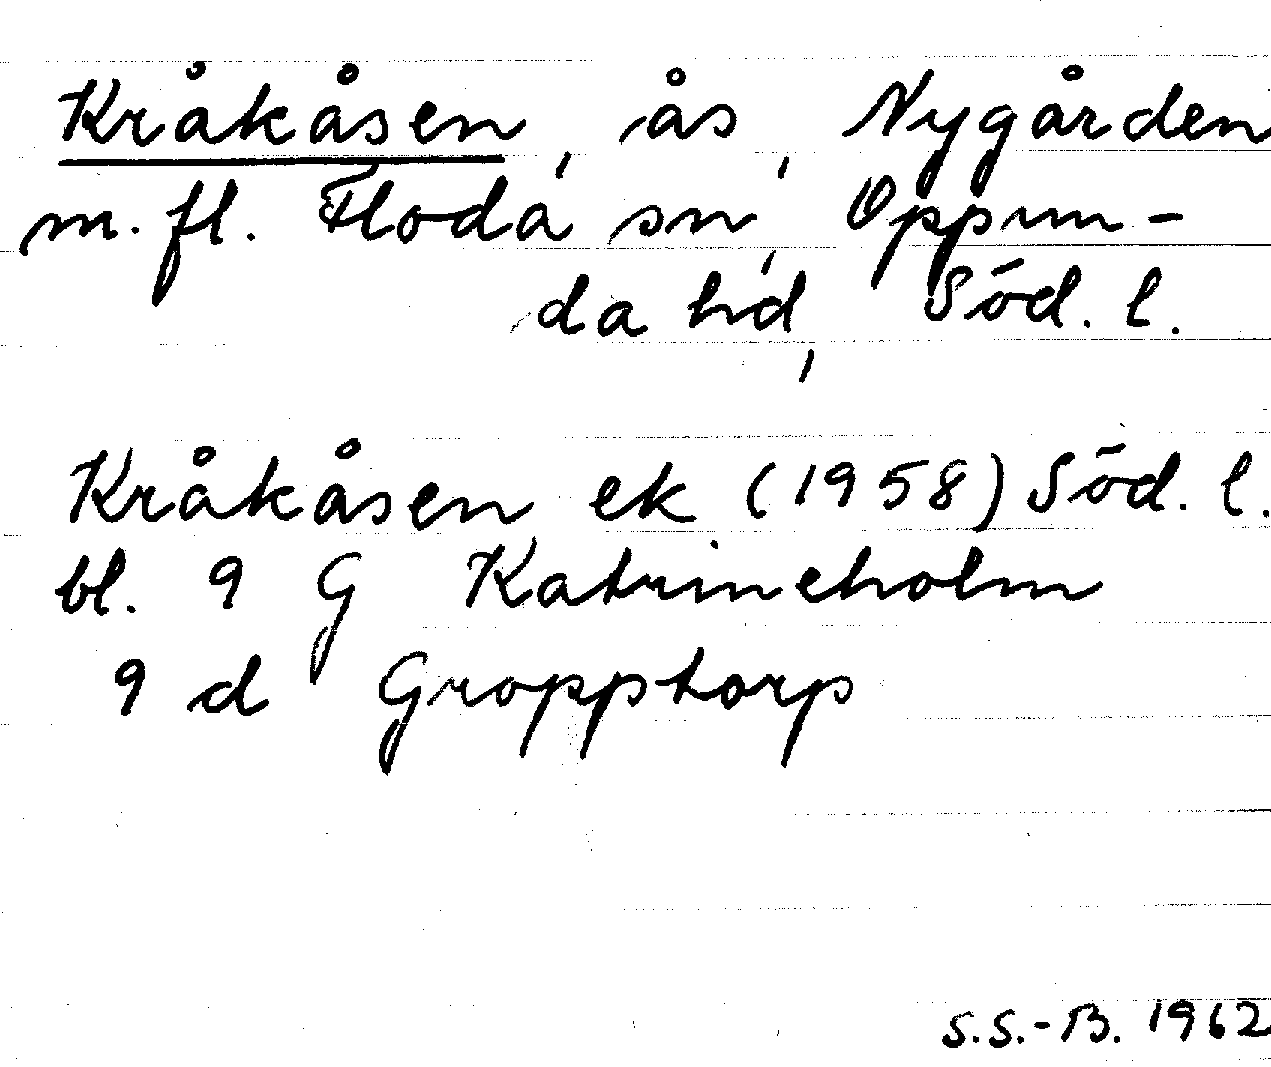 Kråkåsen, ås, Nygården
m. fl. Floda sn, Oppun-
da hd, Söd. l.
Kråkåsen ek (1958) Söd. l.
bl. 9 G Katrineholm
9 d Gropptorp
S.S.-B. 1962